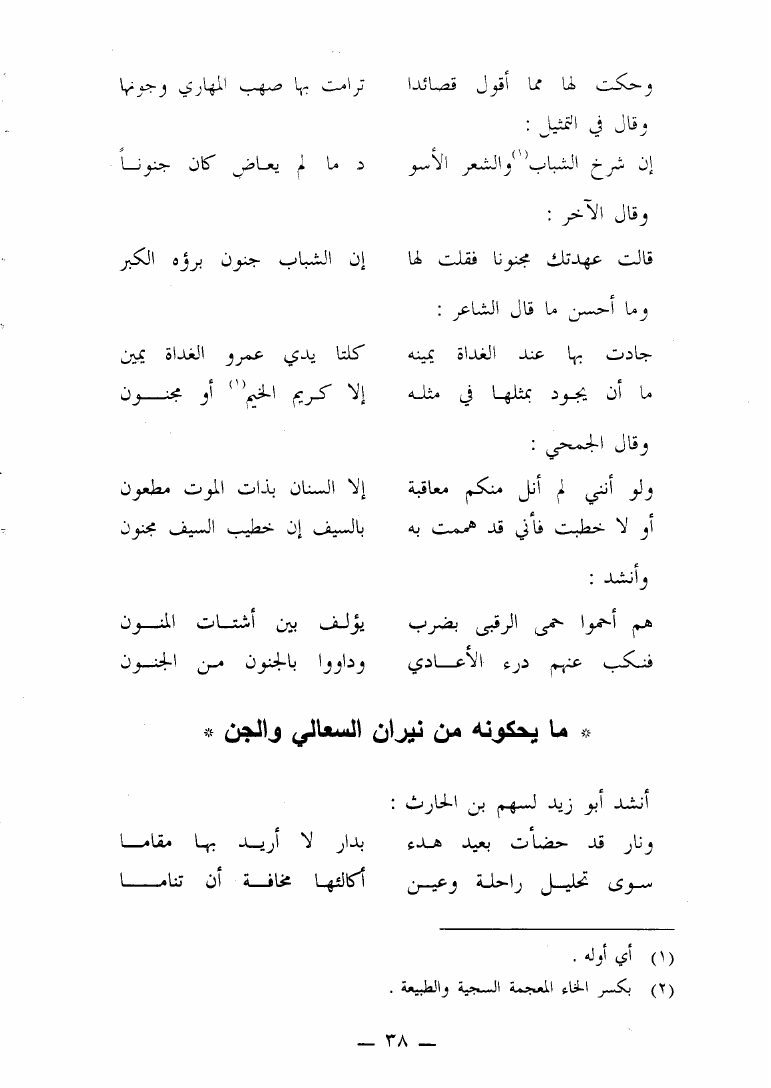 وحكت لها مما أقول قصائدا ترامت بها صهب المهاري وجونها
وقال في التمثيل :
إن شرخ الشباب(١) والشعر الأسو د ما لم يعاض كان جنونـاً
وقال الآخر :
قالت عهدتك مجنونا فقلت لها إن الشباب جنون برؤه الكبر
وما أحسن ما قال الشاعر :
جادت بها عند الغداة يمينه كلتا يدي عمرو الغداة يمين
ما أن يجود بمثلها في مثله إلا كريم الخيم(١) أو مجنـون
وقال الجمحي :
ولو أنني لم أنل منكم معاقبة إلا السنان بذات الموت مطعون
أو لا خطبت فأني قد هممت به بالسيف إن خطيب السيف مجنون
وأنشد :
هم أحموا حمى الرقبى بضرب يؤلف بين أشتات المنـون
فنكب عنهم درء الأعـادي وداووا بالجنون من الجنون
* ما يحكونه من نيران السعالي والجن *
أنشد أبو زيد لسهم بن الحارث :
ونار قد حضأت بعيد هدء بدار لا أريد بها مقامـا
سوى تحليل راحلة وعين أكالئها مخافة أن تنامـا
(١) أي أوله .
(٢) بكسر الخاء المعجمة السجية والطبيعة .
— ٣٨ —